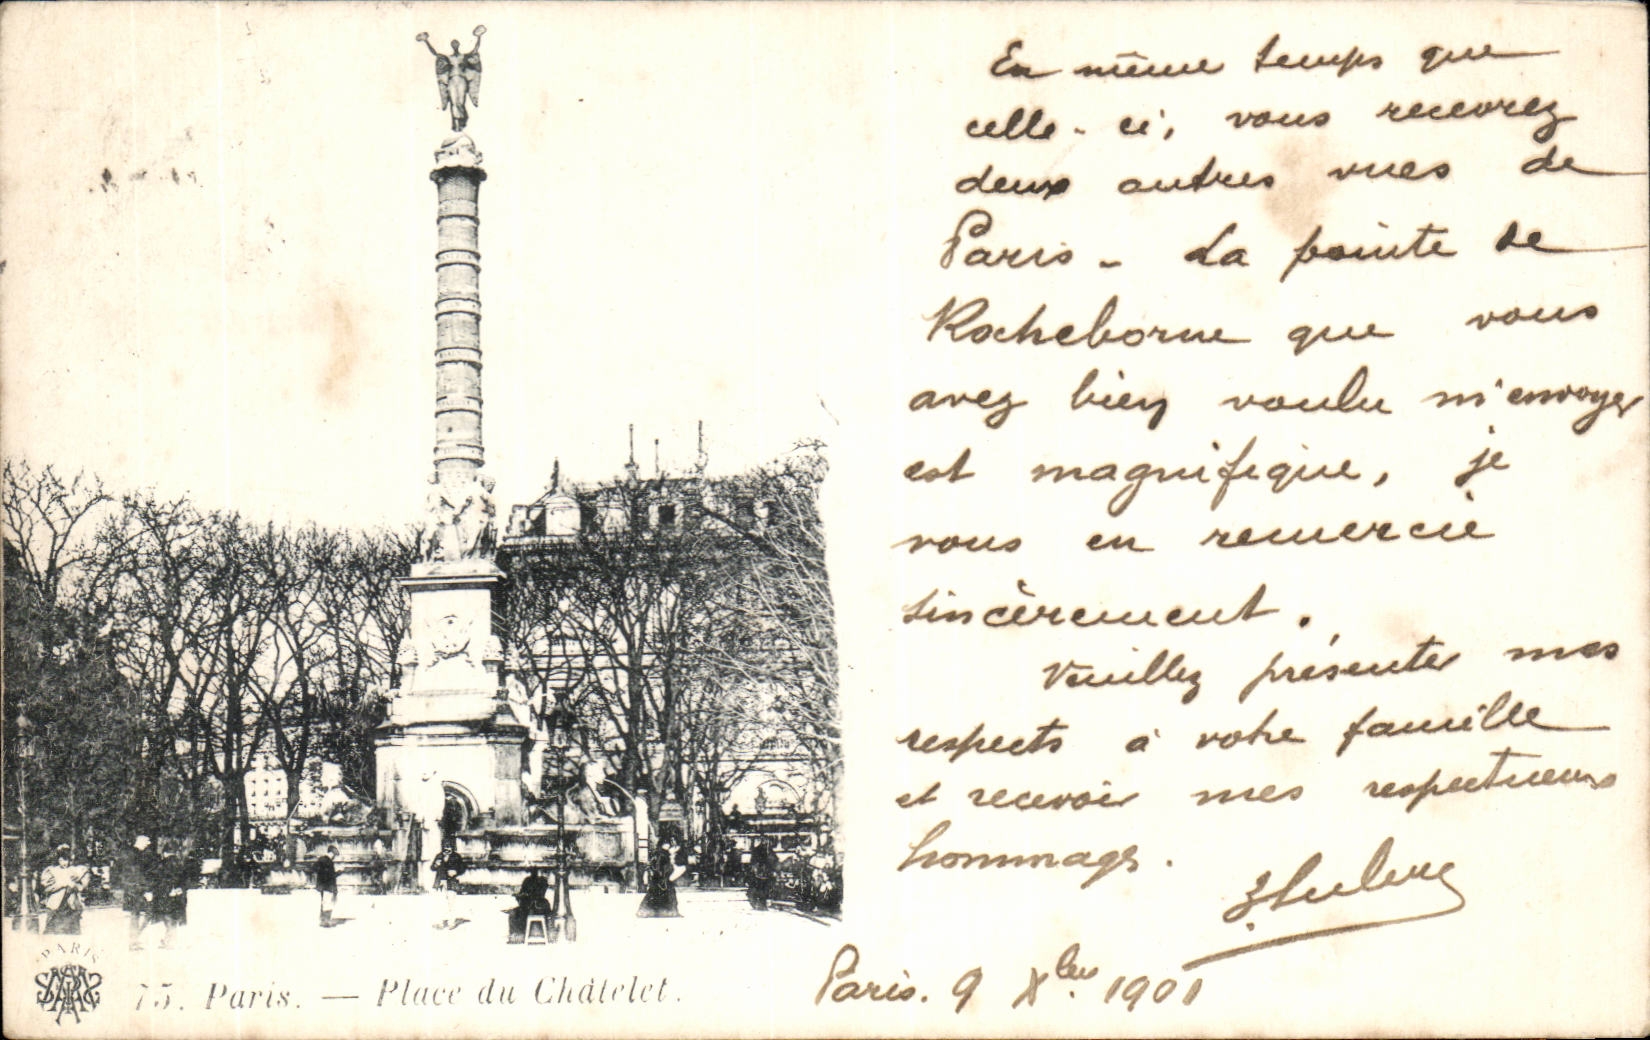 En même temps que
celle-ci, vous recevrez
deux autres vues de
Paris - La pointe de
Rocheborne que vous
avez bien voulu m'envoyer
est magnifique, je
vous en remercie
sincèrement.
Veuillez présenter mes
respects à votre famille
et recevoir mes respectueux
hommages.
Paris. 9 Xbre 1901
PARIS
75. Paris. — Place du Châtelet.